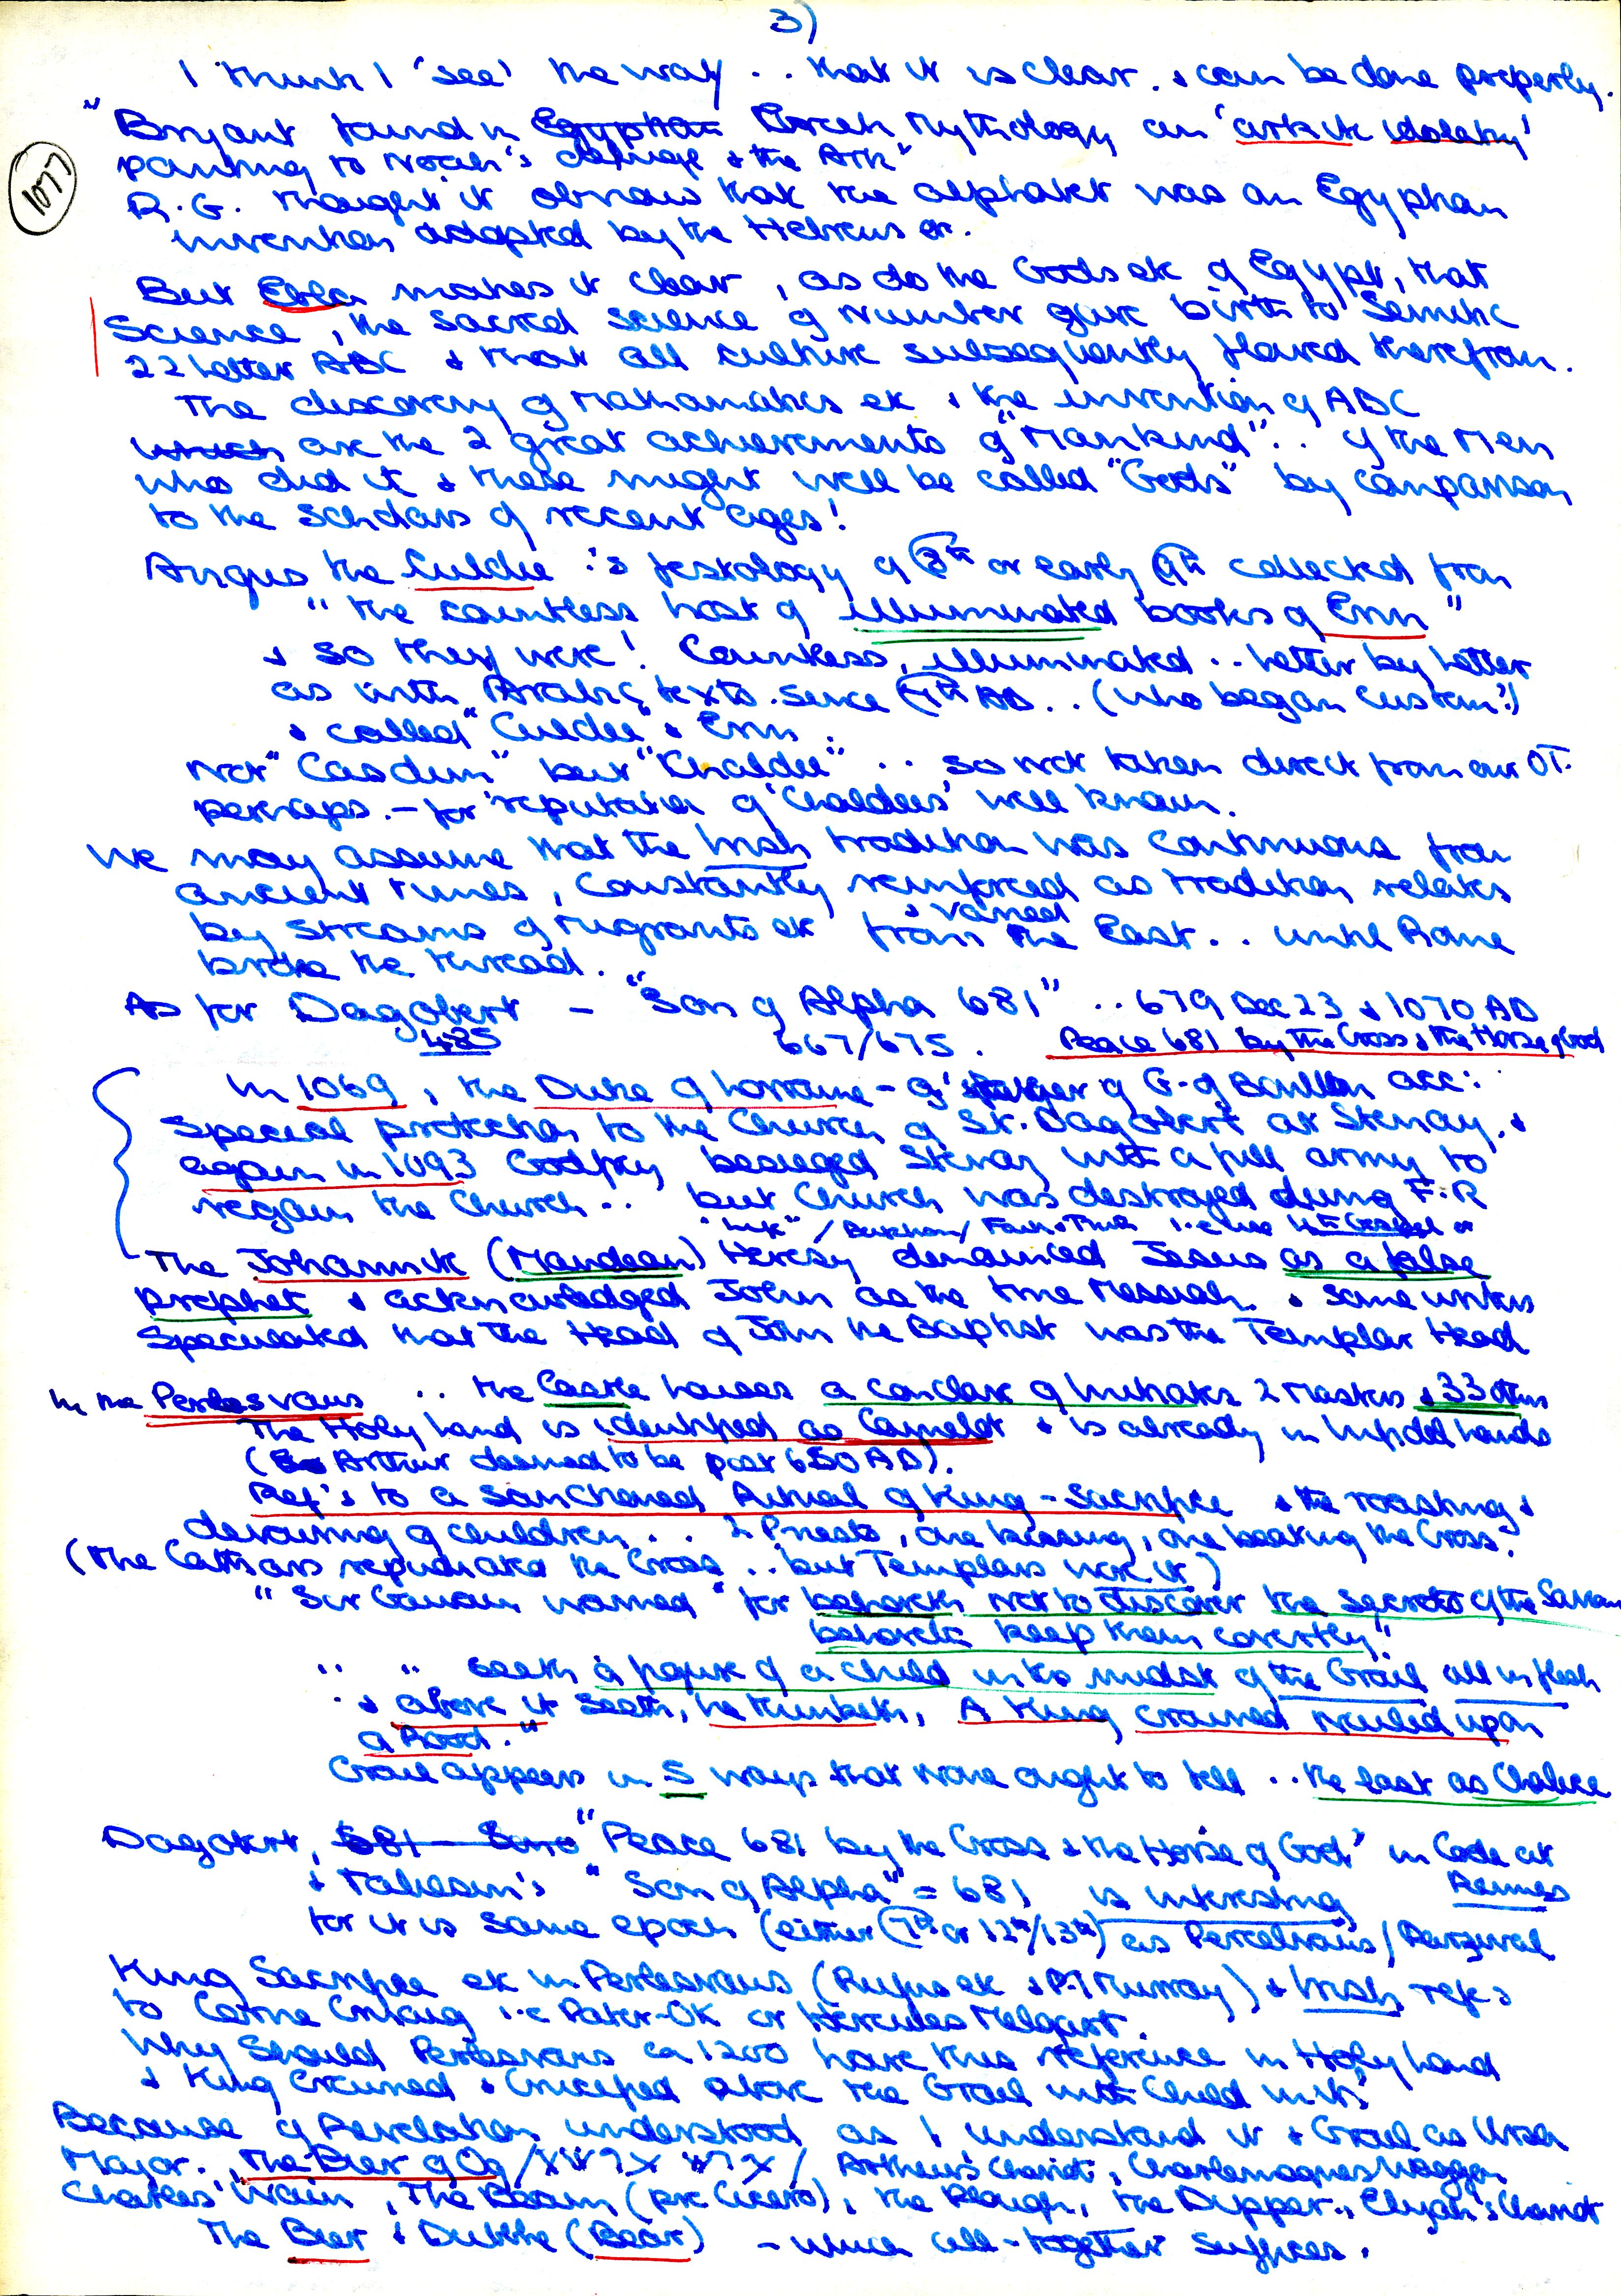 3)
I think I 'see' the way .. that it is clear. & can be done properly.
1077
"Bryant found in Egyptian Greek Mythology an 'arkite idolatry'
pointing to Noah's deluge & the Ark"
R.G. thought it obvious that the alphabet was an Egyptian
invention adopted by the Hebrews etc.
But Ebla makes it clear, as do the Gods etc of Egypt, that
Science, the sacred science of number gave birth to Semitic
22 letter ABC & that all culture subsequently flowed therefrom.
The discovery of Mathematics etc & the invention of ABC
which are the 2 great achievements of "Mankind" .. of the Men
who did it & these might well be called "Gods" by comparison
to the scholars of recent ages!
Angus the Culdee's festology of 8th or early 9th collected from
"the countless host of illuminated books of Erin"
& so they were! Countless, illuminated .. letter by letter
as with Arabic texts since 7th AD .. (Who began custom?)
& called "Culdee" & Erin.
Not "Casdim" but "Khaldee" .. so not taken direct from our OT.
perhaps. - for reputation of 'Chaldees' well known.
We may assume that the Irish tradition was continuous from
ancient times, constantly reinforced as tradition relates
& varied
by streams of migrants etc from the East .. until Rome
broke the thread.
As for Dagobert - "Son of Alpha 681" .. 679 Dec 23 & 1070 AD
485 667/675. Peace 681 by the Cross & the Horse of God
In 1069, the Duke of Lorraine - g' father of G. of Bouillon acc:
Special protection to the Church of St. Dagobert at Stenay, &
again in 1093 Godfrey besieged Stenay with a full army to
regain the Church .. but Church was destroyed during F.R
/ Faith & Truth
The Johannite (Mandean) Heresy denounced Jesus as a false
prophet & acknowledged John as the true Messiah. & some writers
speculated that the Head of John the Baptist was the Templar Head
In the Perlesvaus .. the Castle houses a conclave of Initiates 2 Masters & 33 others
The Holy Land is identified as Camelot & is already in Infidel hands
(So Arthur deemed to be post 650 AD).
Ref's to a sanctioned Ritual of King-Sacrifice & the roasting &
devouring of children .. 2 Priests, one kissing, one beating the Cross.
(The Cathars repudiated the Cross .. but Templars wore it)
"Sir Gawain warned "for behoveth not to discover the secrets of the Saviour
behoveth keep them covertly."
" " seeth a figure of a child in the midst of the Grail all in flesh
& above it seeth, he thinketh, A King crowned nailed upon
a Rood."
Grail appears in 5 ways that none ought to tell .. the last as Chalice
Dagobert, 681 - Son "Peace 681 by the Cross & the Horse of God" in Code at
& Taliesin's "Son of Alpha" = 681 is interesting Rennes
for it is same epoch (either 7th or 12th/13th) as Perceval / Parzival
King Sacrifice etc in Perlesvaus (Rufus etc Murray) & Irish refs
to Cerne i.e Pater-OK or Hercules Melqart.
Why should Perlesvaus ca 1200 have this reference in Holy Land
& King Crowned & Crucified above the Grail with Child in it?
Because of Revelation understood as I understand it & Grail as Ursa
Major. The Bier of Og / Arthur's Chariot, Charlemagne's Waggon
Charles' Wain, The Boam (pre Cicero), the Plough, the Dipper, Elijah's Chariot
The Bier & Dubhe (Bear) - which all-together suffices.